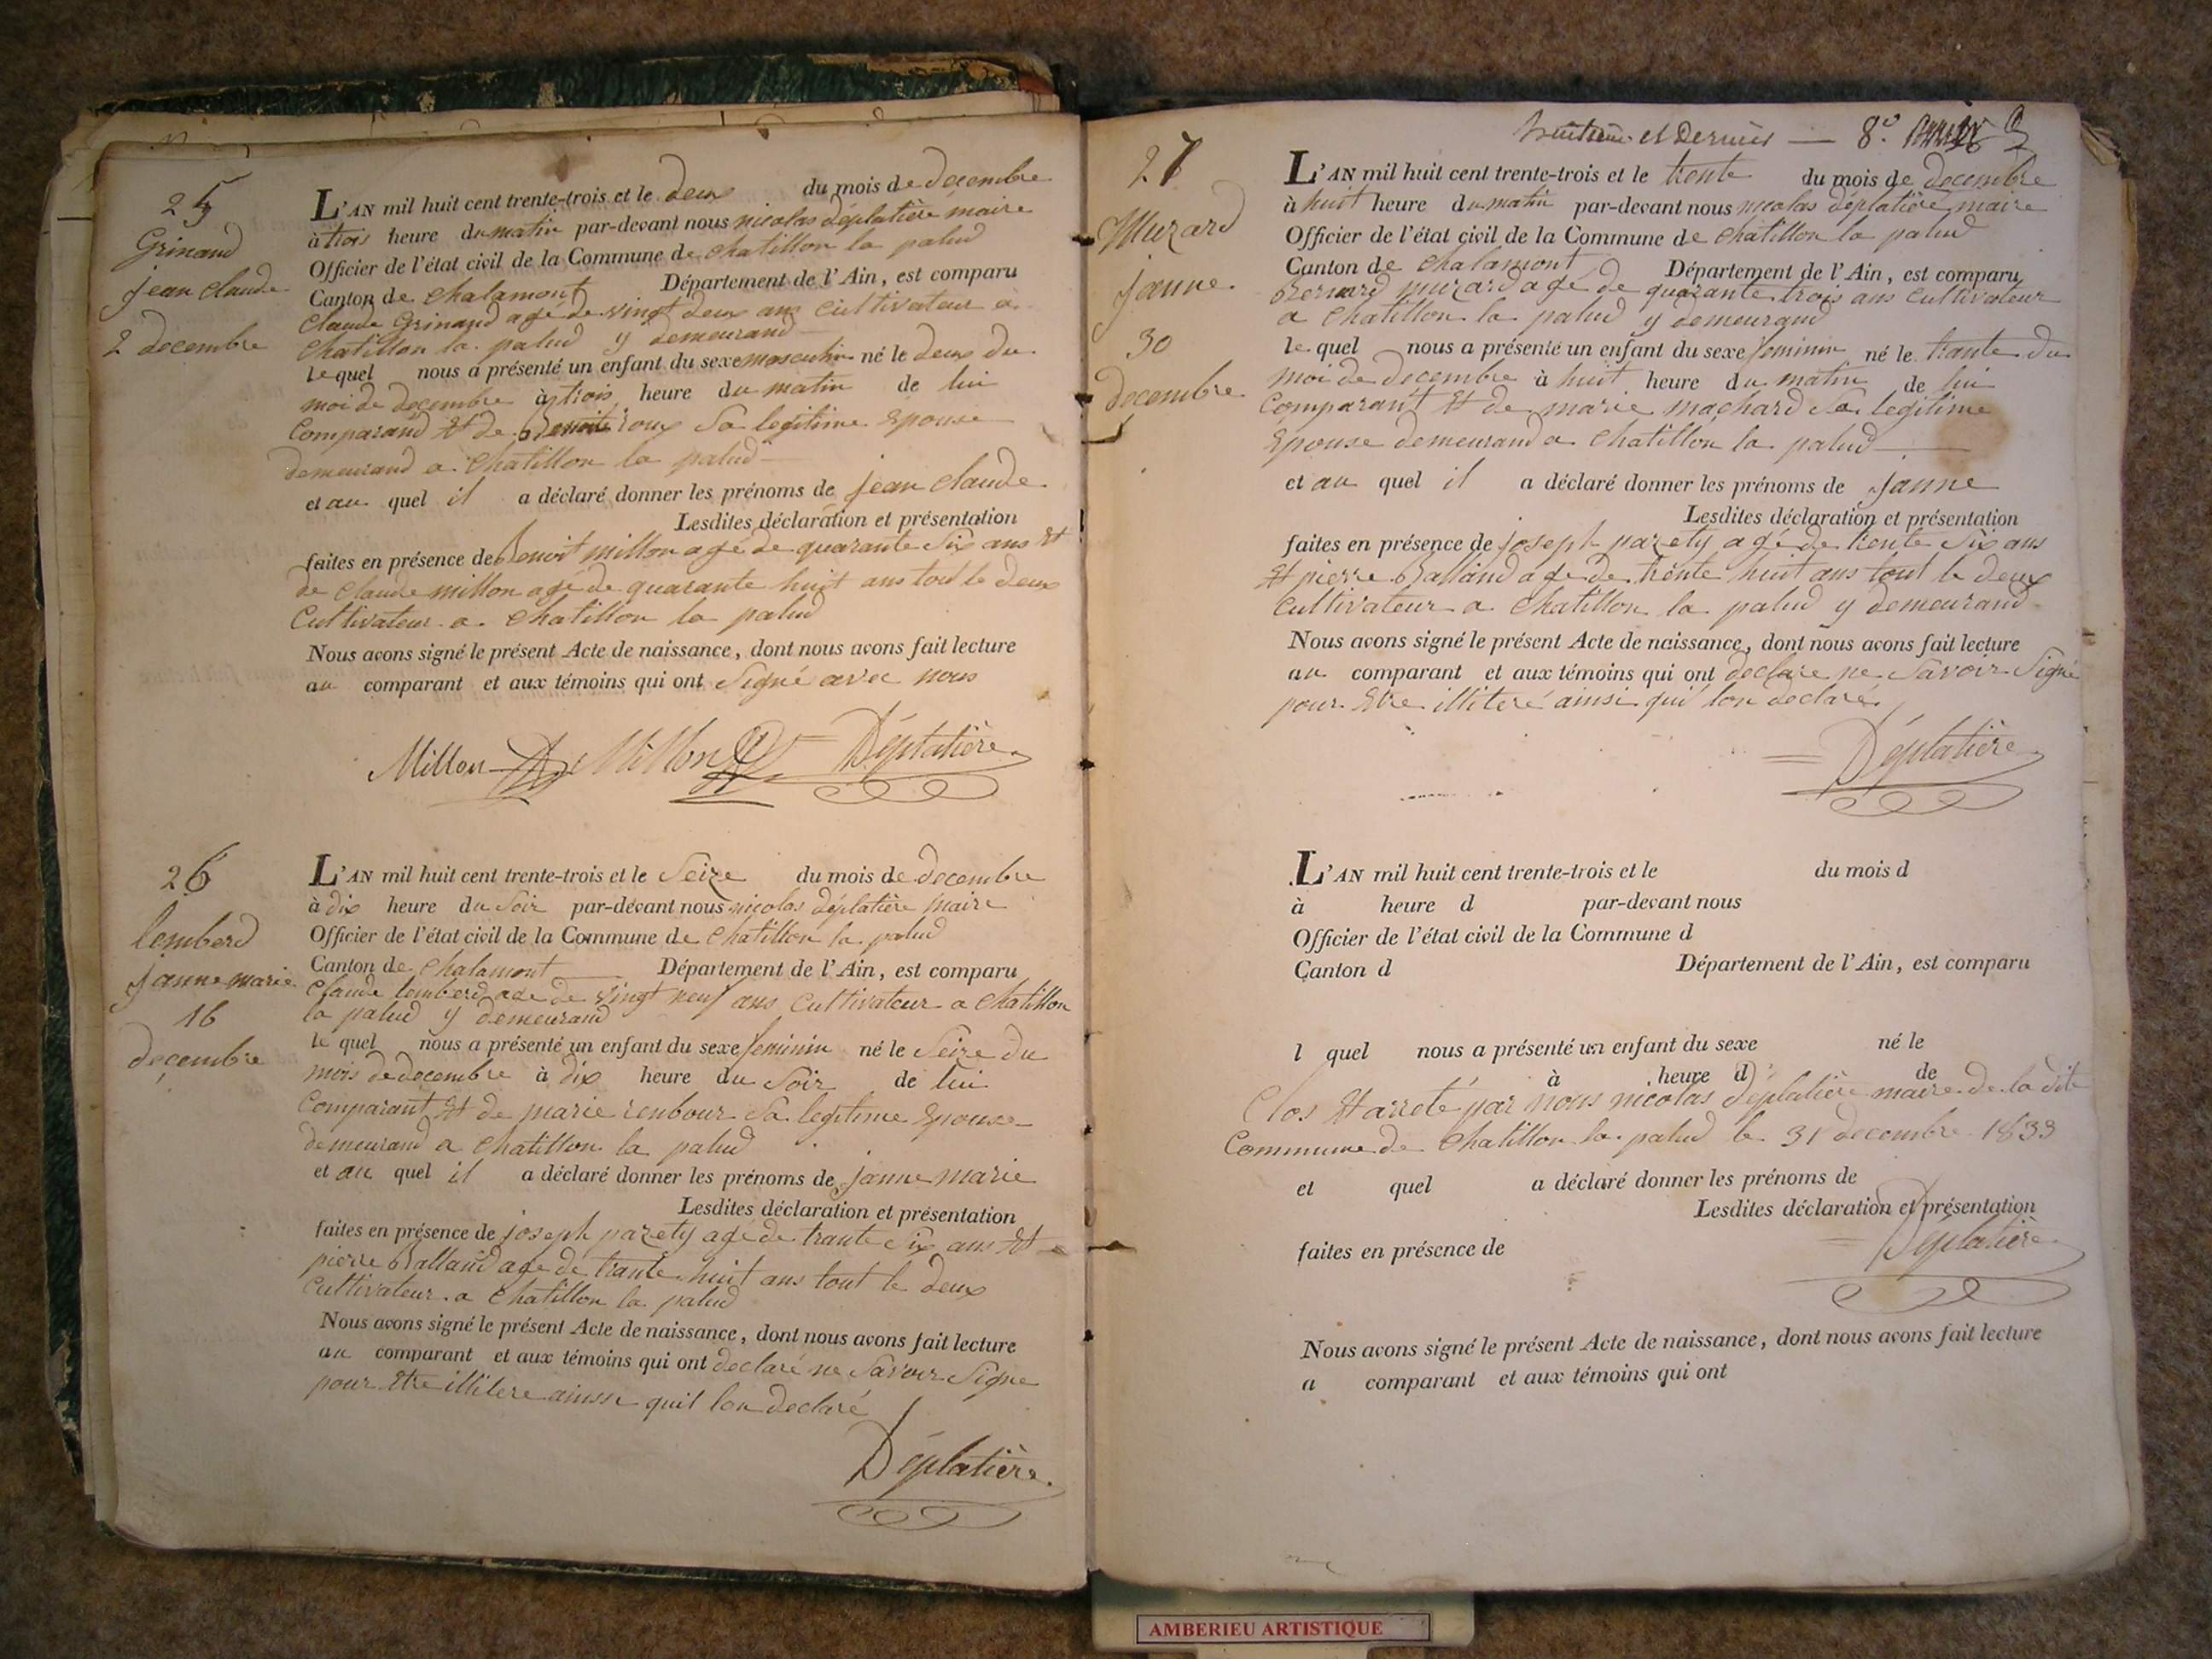 25
Grinand
jean Claude
2 decembre
L'AN mil huit cent trente-trois et le deux du mois de decembre
à trois heure du matin par-devant nous nicolas déplatière maire
Officier de l'état civil de la Commune de chatillon la palud
Canton de chalamont Département de l'Ain, est comparu
Claude Grinand agé de vingt deux ans cultivateur a
chatillon la palud y demeurand
le quel nous a présenté un enfant du sexe masculin né le deux du
moi de decembre à trois heure du matin de lui
Comparand Et de Benoite roux Sa legitime Epouse
demeurand a chatillon la palud
et au quel il a déclaré donner les prénoms de jean Claude
Lesdites déclaration et présentation
faites en présence de Benoit millon agé de quarante Six ans Et
de Claude millon agé de quarante huit ans tout le deux
Cultivateur a chatillon la palud
Nous avons signé le présent Acte de naissance, dont nous avons fait lecture
au comparant et aux témoins qui ont Signé avec nous
Millon Millon Déplatière
26
lemberd
janne marie
16
decembre
L'AN mil huit cent trente-trois et le Seize du mois de decembre
à dix heure du Soir par-devant nous nicolas déplatière maire
Officier de l'état civil de la Commune de chatillon la palud
Canton de chalamont Département de l'Ain, est comparu
Claude lemberd age de vingt neuf ans Cultivateur a chatillon
la palud y demeurand
le quel nous a présenté un enfant du sexe feminin né le Seize du
mois de decembre à dix heure du Soir de lui
Comparant Et de marie renbour Sa legitime Epouse
demeurand a chatillon la palud
et au quel il a déclaré donner les prénoms de janne marie
Lesdites déclaration et présentation
faites en présence de joseph parety agé de trante Six ans Et
pierre Balland age de trante huit ans tout le deux
Cultivateur a chatillon la palud
Nous avons signé le présent Acte de naissance, dont nous avons fait lecture
au comparant et aux témoins qui ont declaré ne Savoir Signe
pour Etre illitere ainssi quil lon declaré
Déplatière
huitieme et Dernier — 8.e
27
Muzard
janne
30
decembre
L'AN mil huit cent trente-trois et le trente du mois de decembre
à huit heure du matin par-devant nous nicolas déplatière maire
Officier de l'état civil de la Commune de chatillon la palud
Canton de chalamont Département de l'Ain, est comparu
Bernard muzard agé de quarante trois ans cultivateur
a chatillon la palud y demeurand
le quel nous a présenté un enfant du sexe feminin né le trante du
moi de decembre à huit heure du matin de lui
Comparant Et de marie machard Sa legitime
Epouse demeurand a chatillon la palud
et au quel il a déclaré donner les prénoms de janne
Lesdites déclaration et présentation
faites en présence de joseph parety agé de trente Six ans
Et pierre Balland agé de trente huit ans tout le deux
Cultivateur a chatillon la palud y demeurand
Nous avons signé le présent Acte de naissance, dont nous avons fait lecture
au comparant et aux témoins qui ont declare ne Savoir Signé
pour Etre illiteré ainsi qui lon declaré
Déplatière
L'AN mil huit cent trente-trois et le du mois d
à heure d par-devant nous
Officier de l'état civil de la Commune d
Canton d Département de l'Ain, est comparu
l quel nous a présenté un enfant du sexe né le
à heure d de
Clos Et arreté par nous nicolas déplatière maire de la dite
Commune de chatillon la palud le 31 decembre 1833
et quel a déclaré donner les prénoms de
Lesdites déclaration et présentation
Déplatière
faites en présence de
Nous avons signé le présent Acte de naissance, dont nous avons fait lecture
a comparant et aux témoins qui ont
AMBERIEU ARTISTIQUE